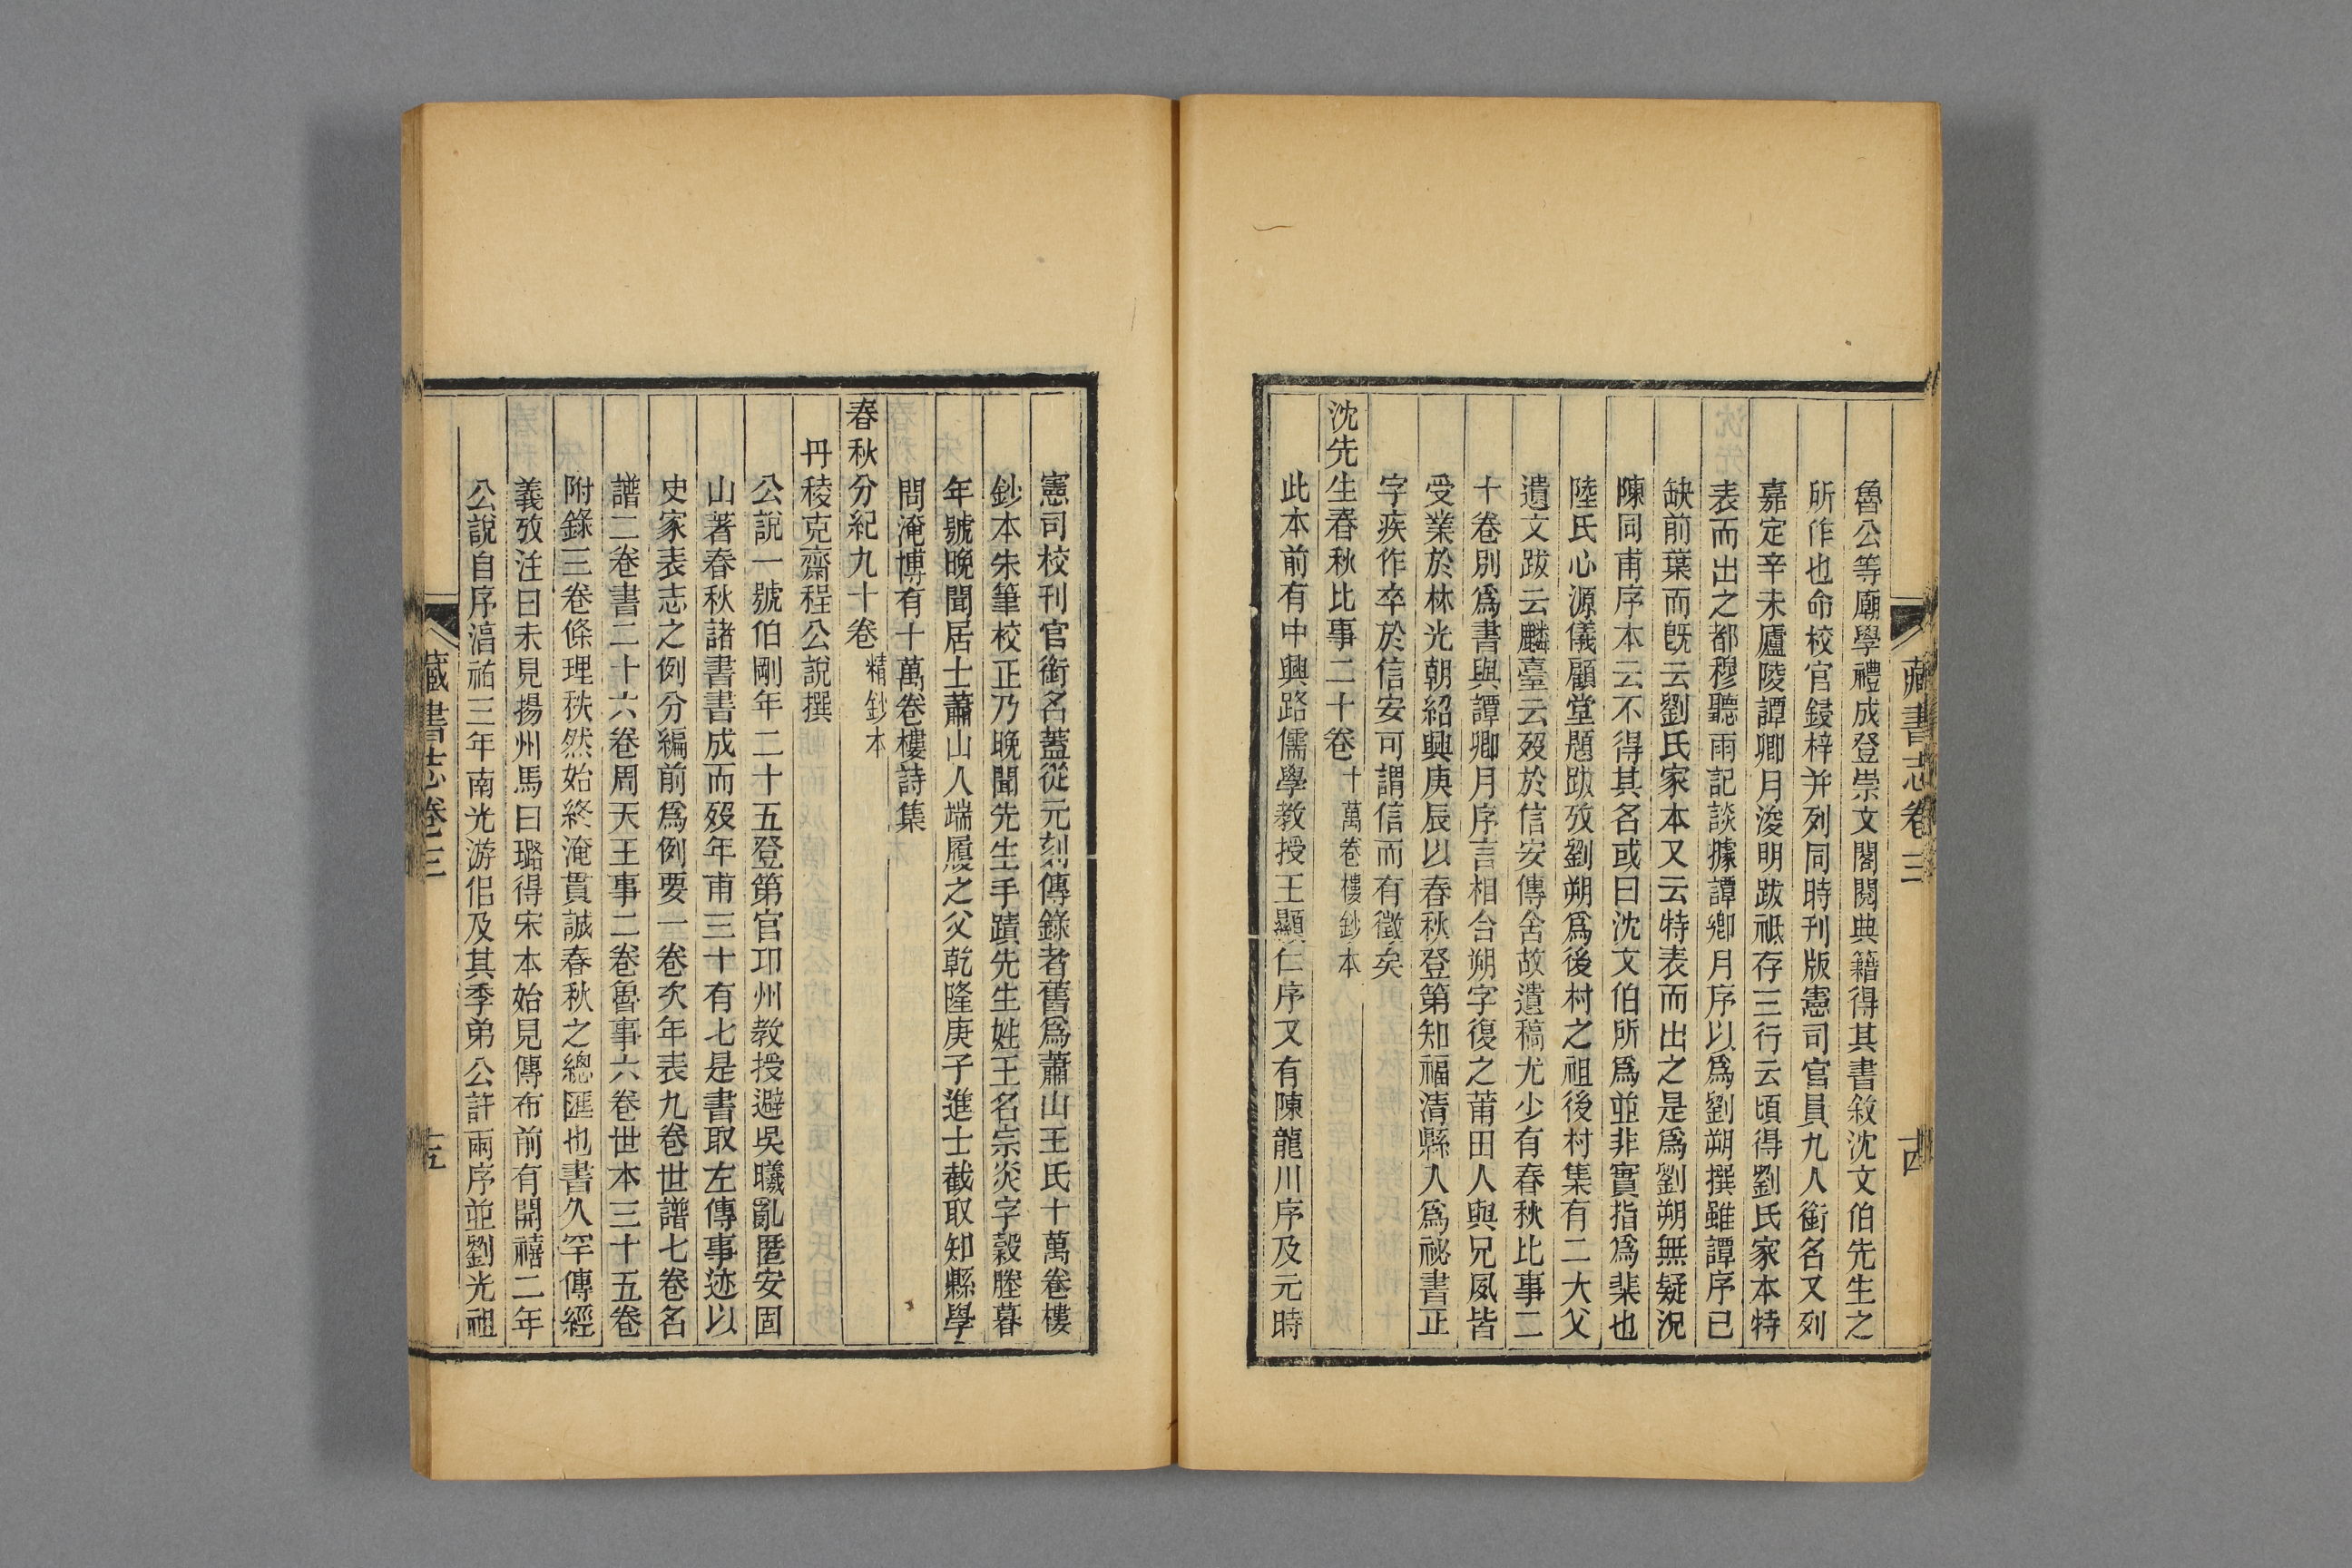 藏書志卷三
魯公等廟學禮成登崇文閣閱典籍得其書敘沈文伯先生之
所作也命校官鋟梓并列同時刊版憲司官員九人銜名又列
嘉定辛未廬陵譚卿月浚明跋祗存三行云頃得劉氏家本特
表而出之都穆聽雨記談據譚卿月序以爲劉朔撰雖譚序已
缺前葉而旣云劉氏家本又云特表而出之是爲劉朔無疑況
陳同甫序本云不得其名或曰沈文伯所爲並非實指爲棐也
陸氏心源儀顧堂題跋攷劉朔爲後村之祖後村集有二大父
遺文跋云麟臺云歿於信安傳舍故遺稿尤少有春秋比事二
十卷別爲書與譚卿月序言相合朔字復之莆田人與兄夙皆
受業於林光朝紹興庚辰以春秋登第知福清縣入爲祕書正
字疾作卒於信安可謂信而有徵矣
沈先生春秋比事二十卷 十萬卷樓鈔本
此本前有中興路儒學教授王顯仁序又有陳龍川序及元時
憲司校刊官銜名蓋從元刻傳錄者舊爲蕭山王氏十萬卷樓
鈔本朱筆校正乃晚聞先生手蹟先生姓王名宗炎字穀塍暮
年號晚聞居士蕭山人端履之父乾隆庚子進士截取知縣學
問淹博有十萬卷樓詩集
春秋分紀九十卷 精鈔本
丹稜克齋程公說撰
公說一號伯剛年二十五登第官邛州教授避吳曦亂匿安固
山著春秋諸書書成而歿年甫三十有七是書取左傳事迹以
史家表志之例分編前爲例要一卷次年表九卷世譜七卷名
譜二卷書二十六卷周天王事二卷魯事六卷世本三十五卷
附錄三卷條理秩然始終淹貫誠春秋之總匯也書久罕傳經
義攷注曰未見揚州馬曰璐得宋本始見傳布前有開禧二年
公說自序湻祐三年南光游侣及其季弟公許兩序並劉光祖
藏書志卷三